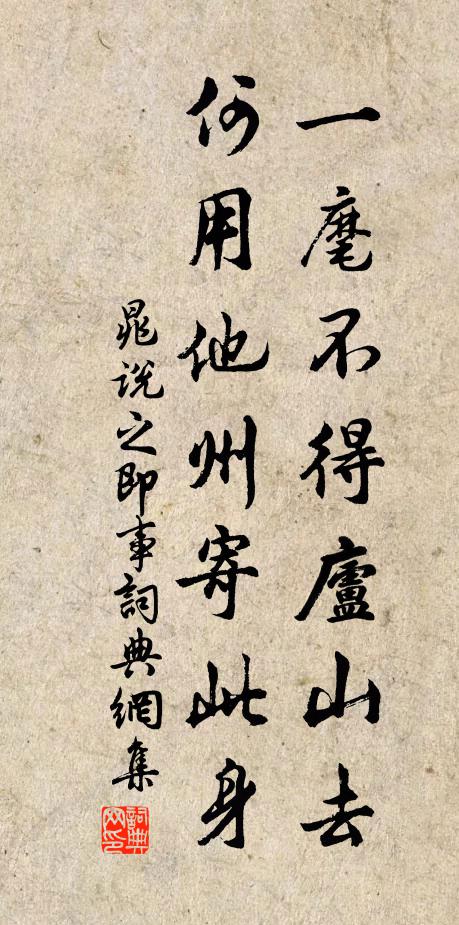 一麾不得廬山去
何用他州寄此身
晁說之即事詞典網集
詞典
网印